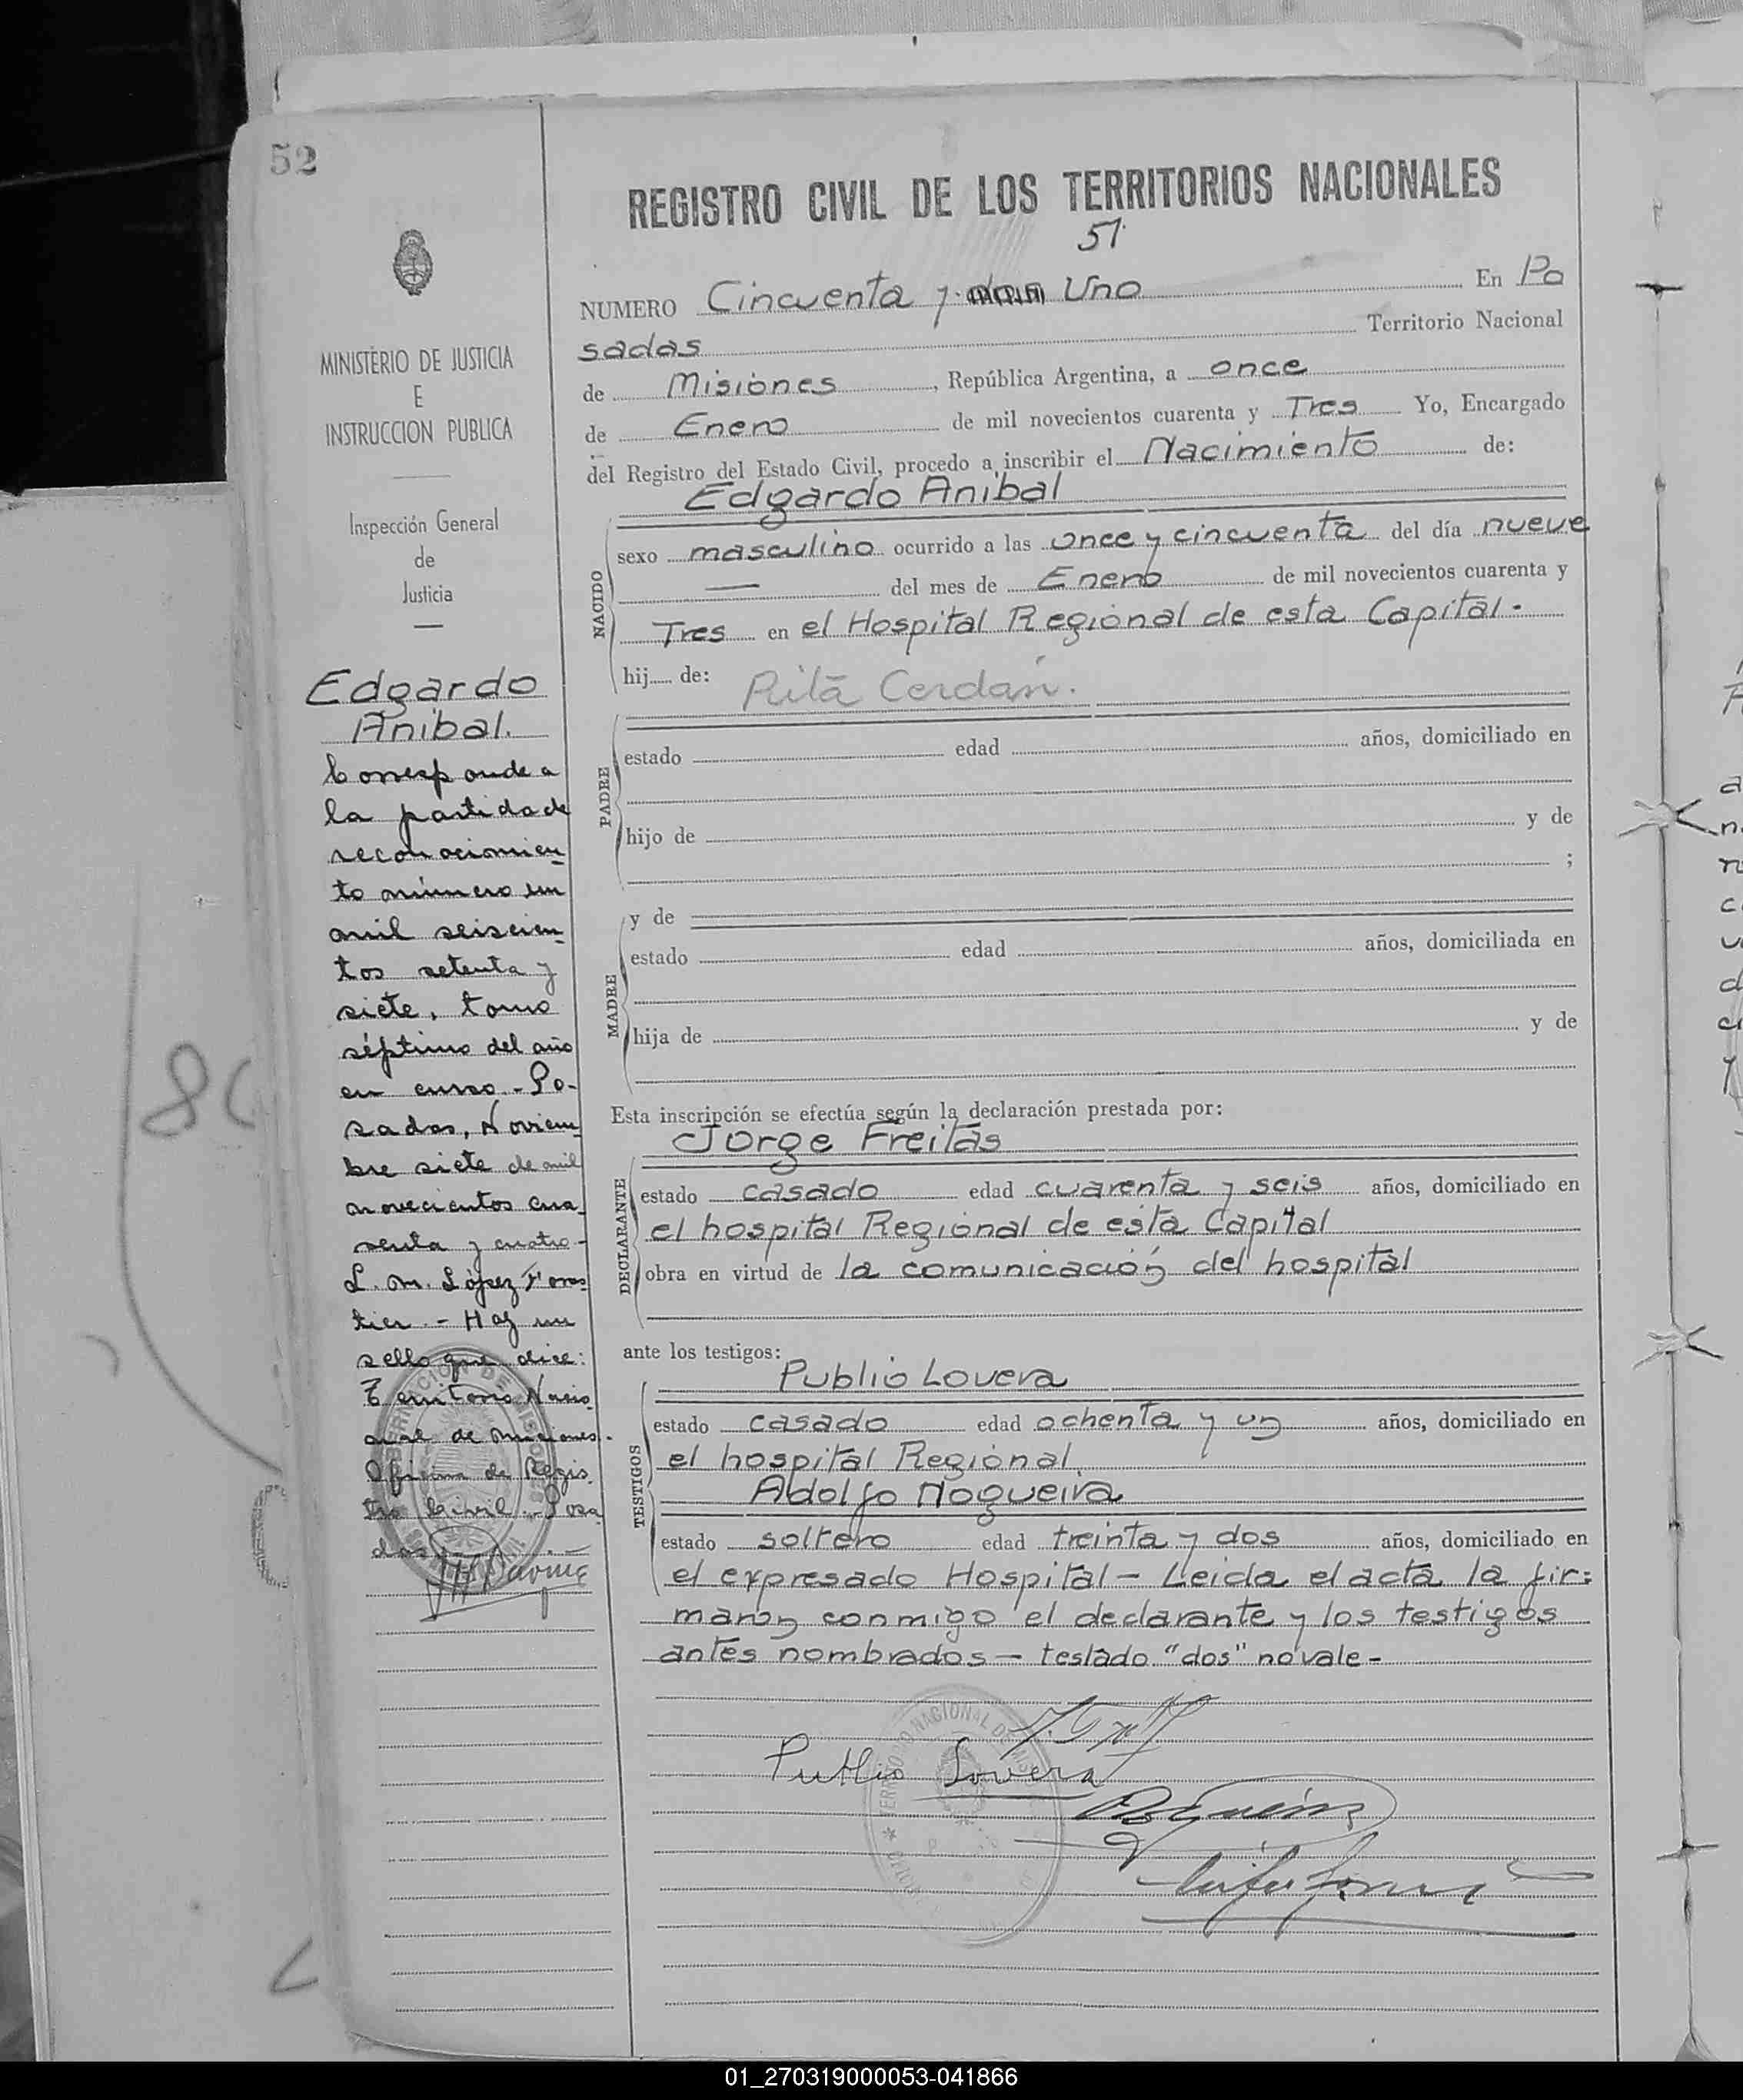 52
REGISTRO CIVIL DE LOS TERRITORIOS NACIONALES
51
NUMERO Cincuenta y dos Uno En Po
sadas Territorio Nacional
de Misiones, República Argentina, a once
de Enero de mil novecientos cuarenta y Tres Yo, Encargado
del Registro del Estado Civil, procedo a inscribir el Nacimiento de:
Edgardo Anibal
NACIDO
sexo masculino ocurrido a las once y cincuenta del día nueve
— del mes de Enero de mil novecientos cuarenta y
Tres en el Hospital Regional de esta Capital.
hij de: Rita Cerdán.
PADRE
estado edad años, domiciliado en
hijo de y de
;
MADRE
y de
estado edad años, domiciliada en
hija de y de
Esta inscripción se efectúa según la declaración prestada por:
Jorge Freitas
DECLARANTE
estado casado edad cuarenta y seis años, domiciliado en
el hospital Regional de esta Capital
obra en virtud de la comunicación del hospital
ante los testigos:
Publio Lovera
TESTIGOS
estado casado edad ochenta y un años, domiciliado en
el hospital Regional.
Adolfo Nogueira
estado soltero edad treinta y dos años, domiciliado en
el expresado Hospital – Leida el acta la fir=
maron conmigo el declarante y los testigos
antes nombrados – testado "dos" no vale -
Publio Lovera
MINISTERIO DE JUSTICIA
E
INSTRUCCION PUBLICA
Inspección General
de
Justicia
Edgardo
Anibal.
Corresponde a
la partida de
reconocimien
to número un
mil seiscien
tos setenta y
siete, tomo
séptimo del año
en curso - Po-
sadas, Noviem
bre siete de mil
novecientos cua
renta y cuatro -
L. M. López Fores
tier - Hay un
sello que dice:
Territorio Nacio
nal de Misiones.
Oficina de Regis
tro Civil. Posa
das
01_270319000053-041866